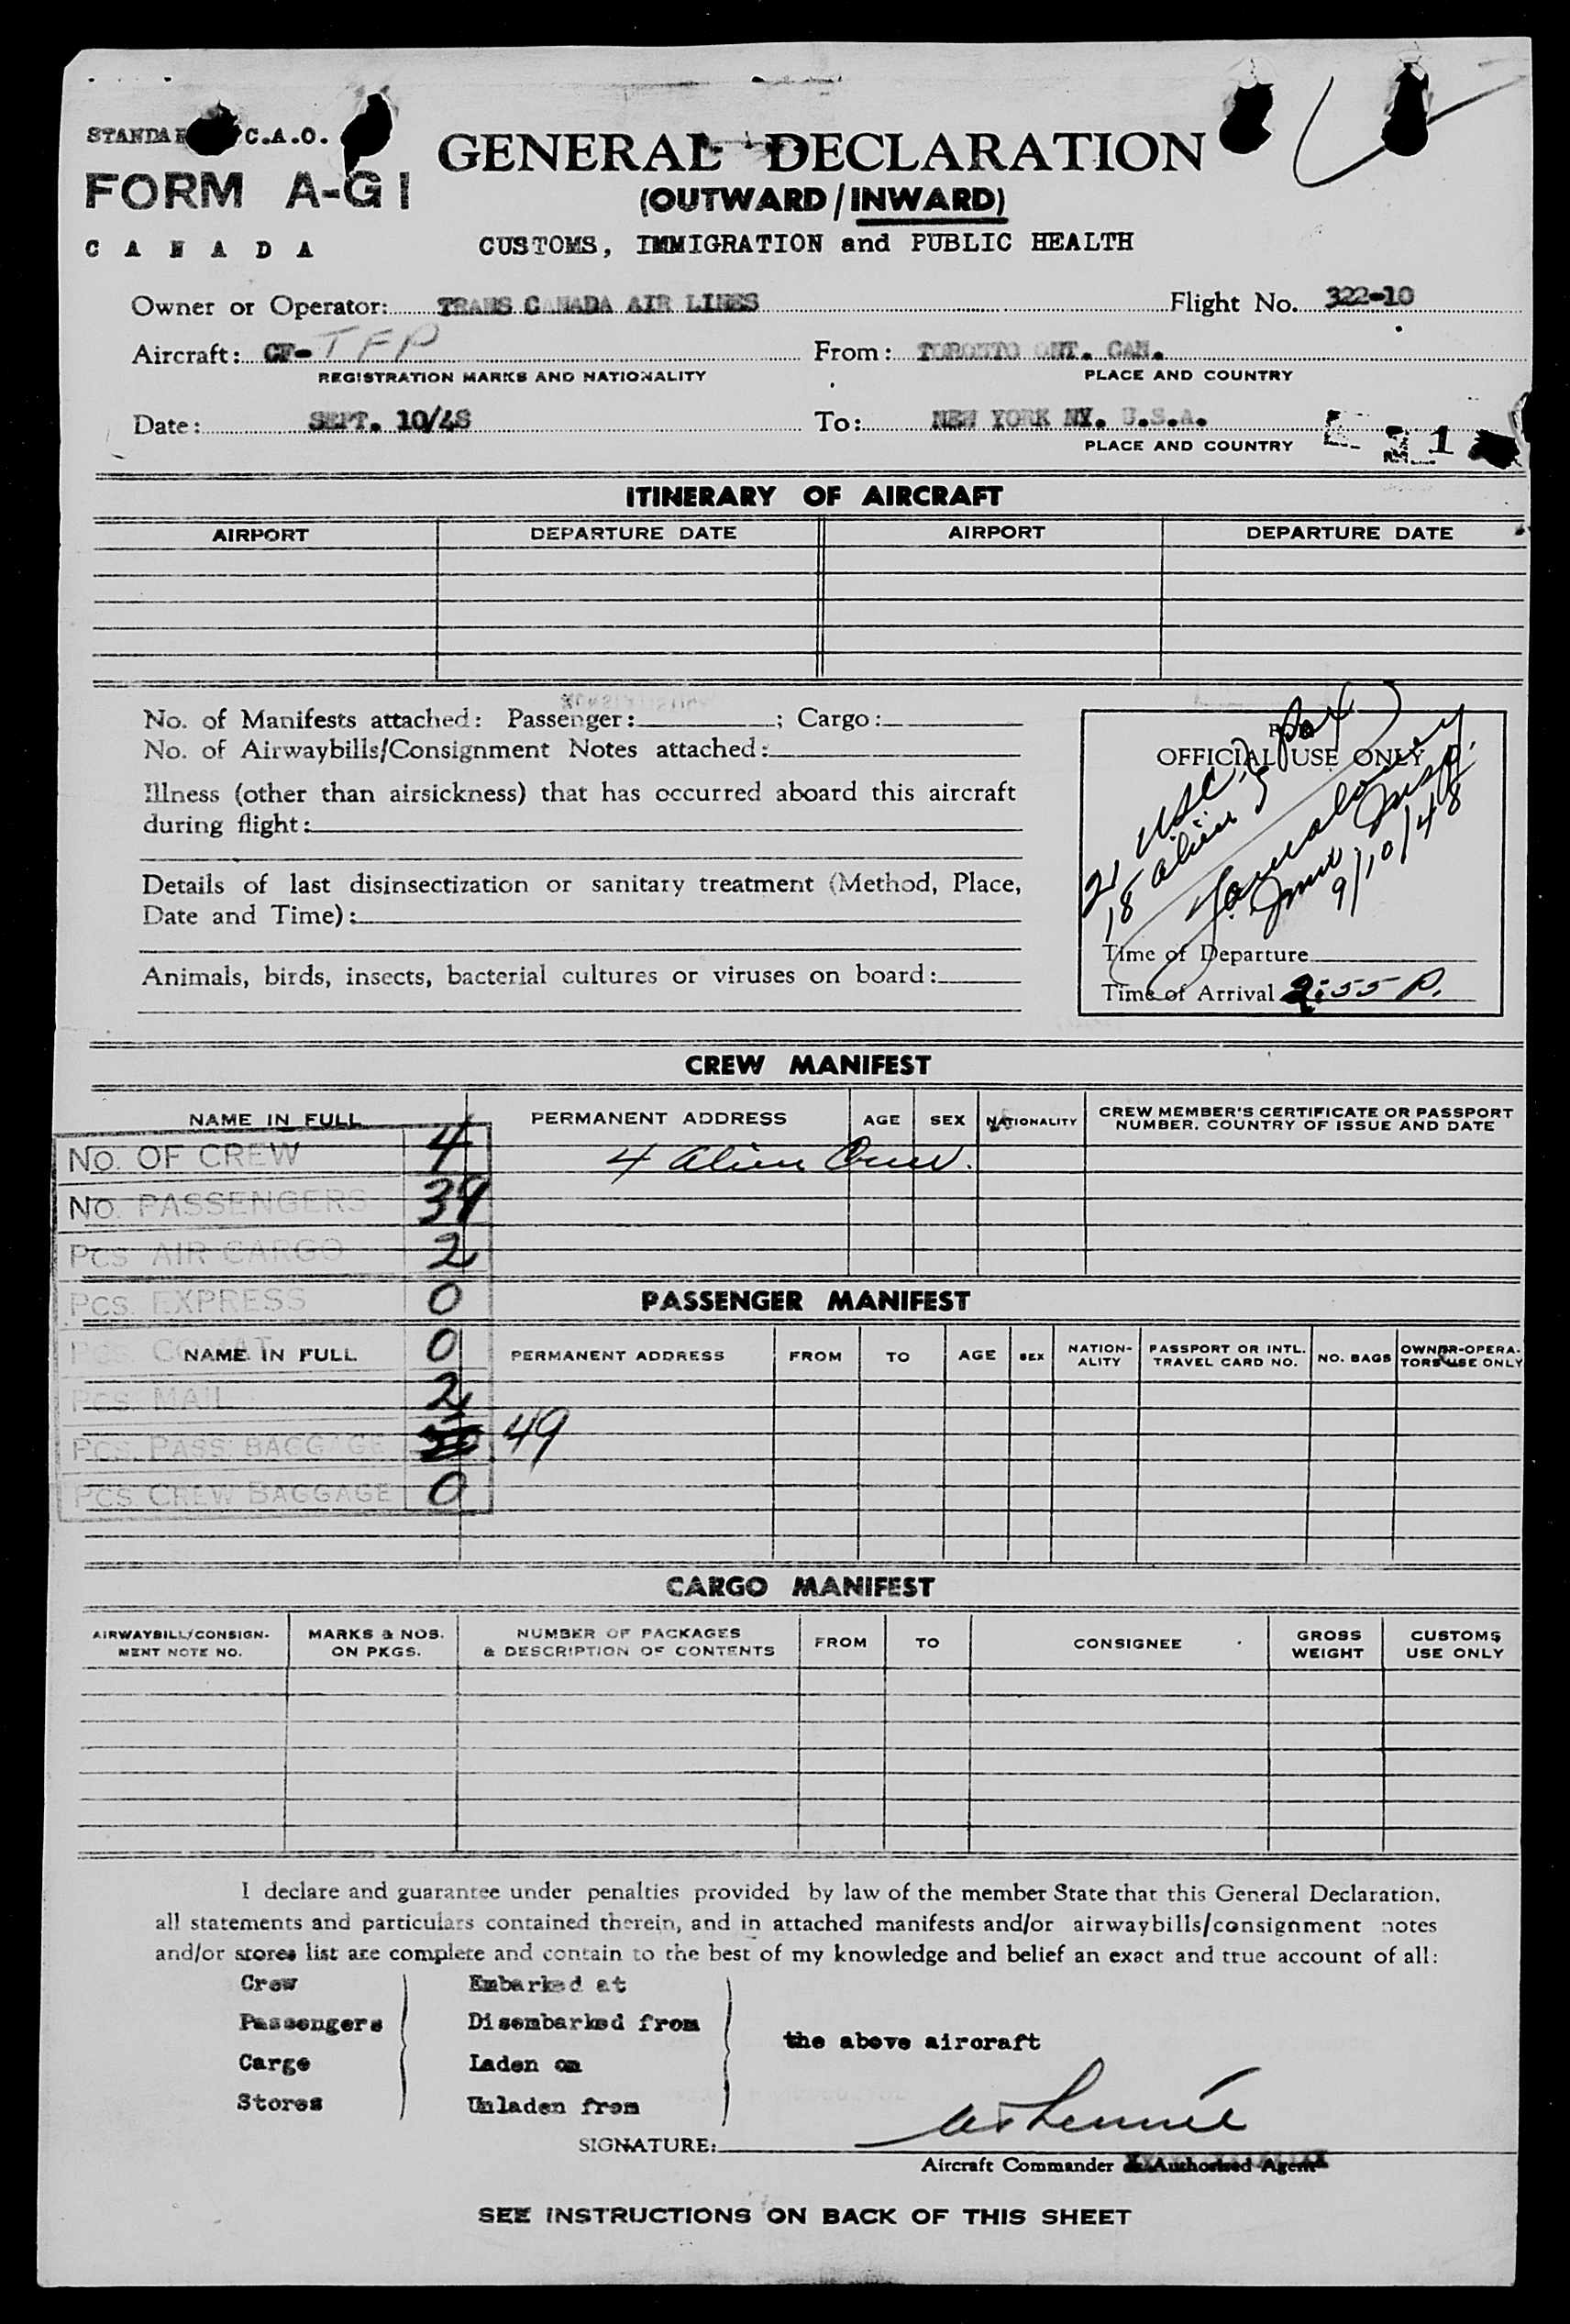 C.A.O.
GENERAL DECLARATION
FORM A-G1
(OUTWARD/INWARD)
CANADA
CUSTOMS, IMMIGRATION and PUBLIC HEALTH
Owner or Operator: TRANS CANADA AIR LINES Flight No. 322-10
Aircraft: CF-TFP From: TORONTO ONT. CAN.
REGISTRATION MARKS AND NATIONALITY PLACE AND COUNTRY
Date: SEPT. 10/48 To: NEW YORK NY. U.S.A.
PLACE AND COUNTRY
ITINERARY OF AIRCRAFT
AIRPORT DEPARTURE DATE AIRPORT DEPARTURE DATE
No. of Manifests attached: Passenger: ; Cargo:
No. of Airwaybills/Consignment Notes attached:
Illness (other than airsickness) that has occurred aboard this aircraft
during flight:
Details of last disinsectization or sanitary treatment (Method, Place,
Date and Time):
Animals, birds, insects, bacterial cultures or viruses on board:
OFFICIAL USE ONLY
21 USC
18 alien
Pax
Immig. Insp.
9/10/48
Time of Departure
Time of Arrival 2:55 P.
CREW MANIFEST
NAME IN FULL PERMANENT ADDRESS AGE SEX NATIONALITY CREW MEMBER'S CERTIFICATE OR PASSPORT
NUMBER. COUNTRY OF ISSUE AND DATE
No. OF CREW 4 4 alien Crew.
No. PASSENGERS 39
Pcs. AIR CARGO 2
Pcs. EXPRESS 0
PASSENGER MANIFEST
Pcs. COMAT 0
NAME IN FULL PERMANENT ADDRESS FROM TO AGE SEX NATION-
ALITY PASSPORT OR INTL.
TRAVEL CARD NO. NO. BAGS OWNER-OPERA-
TORS USE ONLY
Pcs. MAIL 2
Pcs. PASS. BAGGAGE 49
Pcs. CREW BAGGAGE 0
CARGO MANIFEST
AIRWAYBILL/CONSIGN-
MENT NOTE NO. MARKS & NOS.
ON PKGS. NUMBER OF PACKAGES
& DESCRIPTION OF CONTENTS FROM TO CONSIGNEE GROSS
WEIGHT CUSTOMS
USE ONLY
I declare and guarantee under penalties provided by law of the member State that this General Declaration,
all statements and particulars contained therein, and in attached manifests and/or airwaybills/consignment notes
and/or stores list are complete and contain to the best of my knowledge and belief an exact and true account of all:
Crew Embarked at
Passengers Disembarked from
the above aircraft
Cargo Laden on
Stores Unladen from
SIGNATURE:
Aircraft Commander or Authorized Agent
SEE INSTRUCTIONS ON BACK OF THIS SHEET